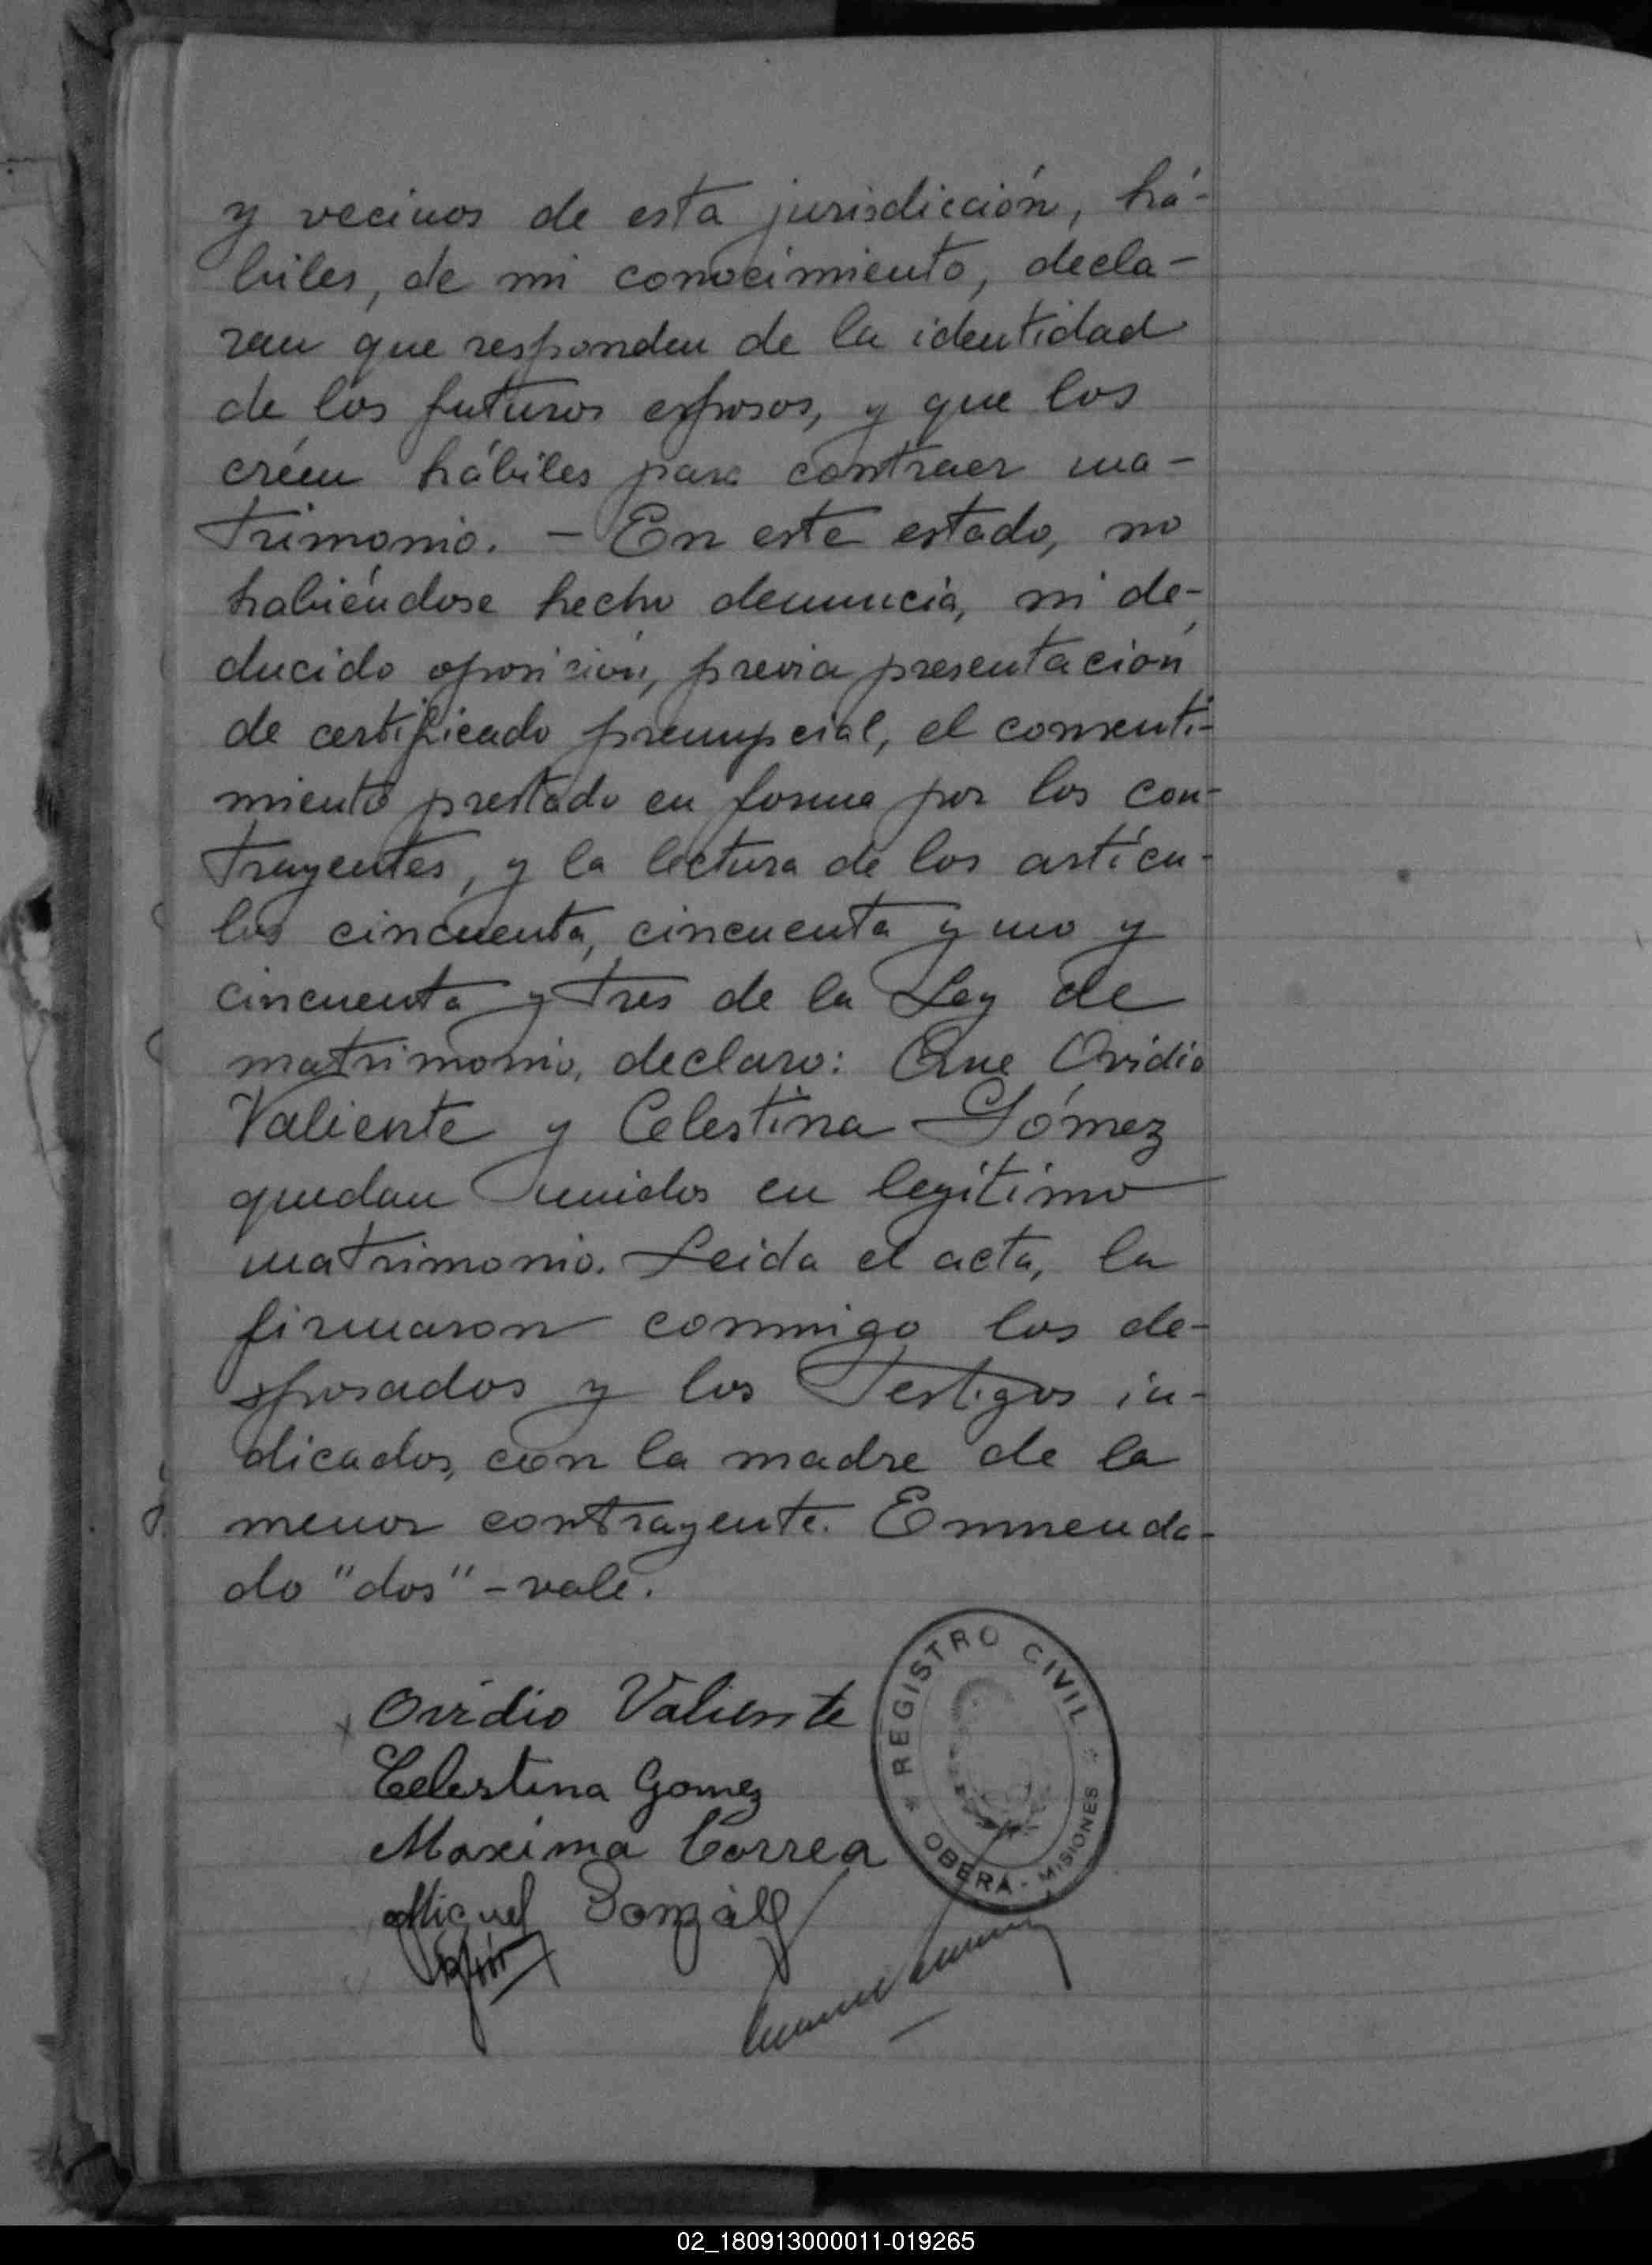 y vecinos de esta jurisdicción, há-
biles, de mi conocimiento, decla-
ran que responden de la identidad
de los futuros esposos, y que los
créen hábiles para contraer ma-
trimonio. - En este estado, no
habiéndose hecho denuncia, ni de-
ducido oposición, previa presentación
de certificado prenupcial, el consenti-
miento prestado en forma por los con-
trayentes, y la lectura de los artícu-
los cincuenta, cincuenta y uno y
cincuenta y tres de la Ley de
matrimonio, declaro: Que Ovidio
Valiente y Celestina Gómez
quedan unidos en legítimo
matrimonio. Leida el acta, la
firmaron conmigo los de-
sposados y los Testigos in-
dicados, con la madre de la
menor contrayente. Enmenda-
do "dos" - vale.
Ovidio Valiente
Celestina Gomez
Maxima Correa
Miguel Gonzàlez
REGISTRO CIVIL
OBERÁ - MISIONES
02_180913000011-019265